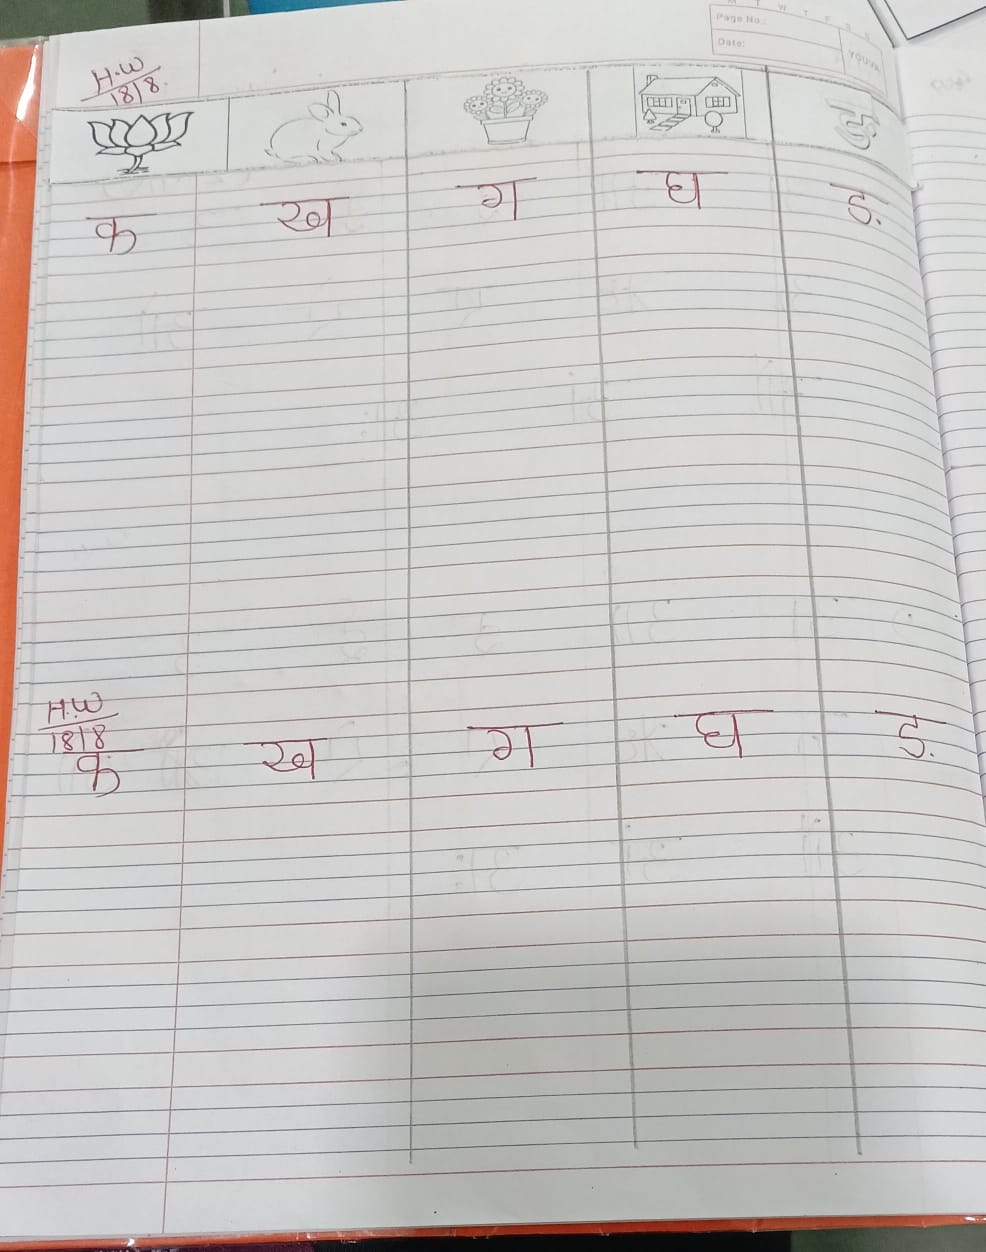 M T W T F S S
Page No.:
Date:
YOUVA
H.W
18/8.
ङ
क ख ग घ ङ
H.W
18/8
क ख ग घ ङ